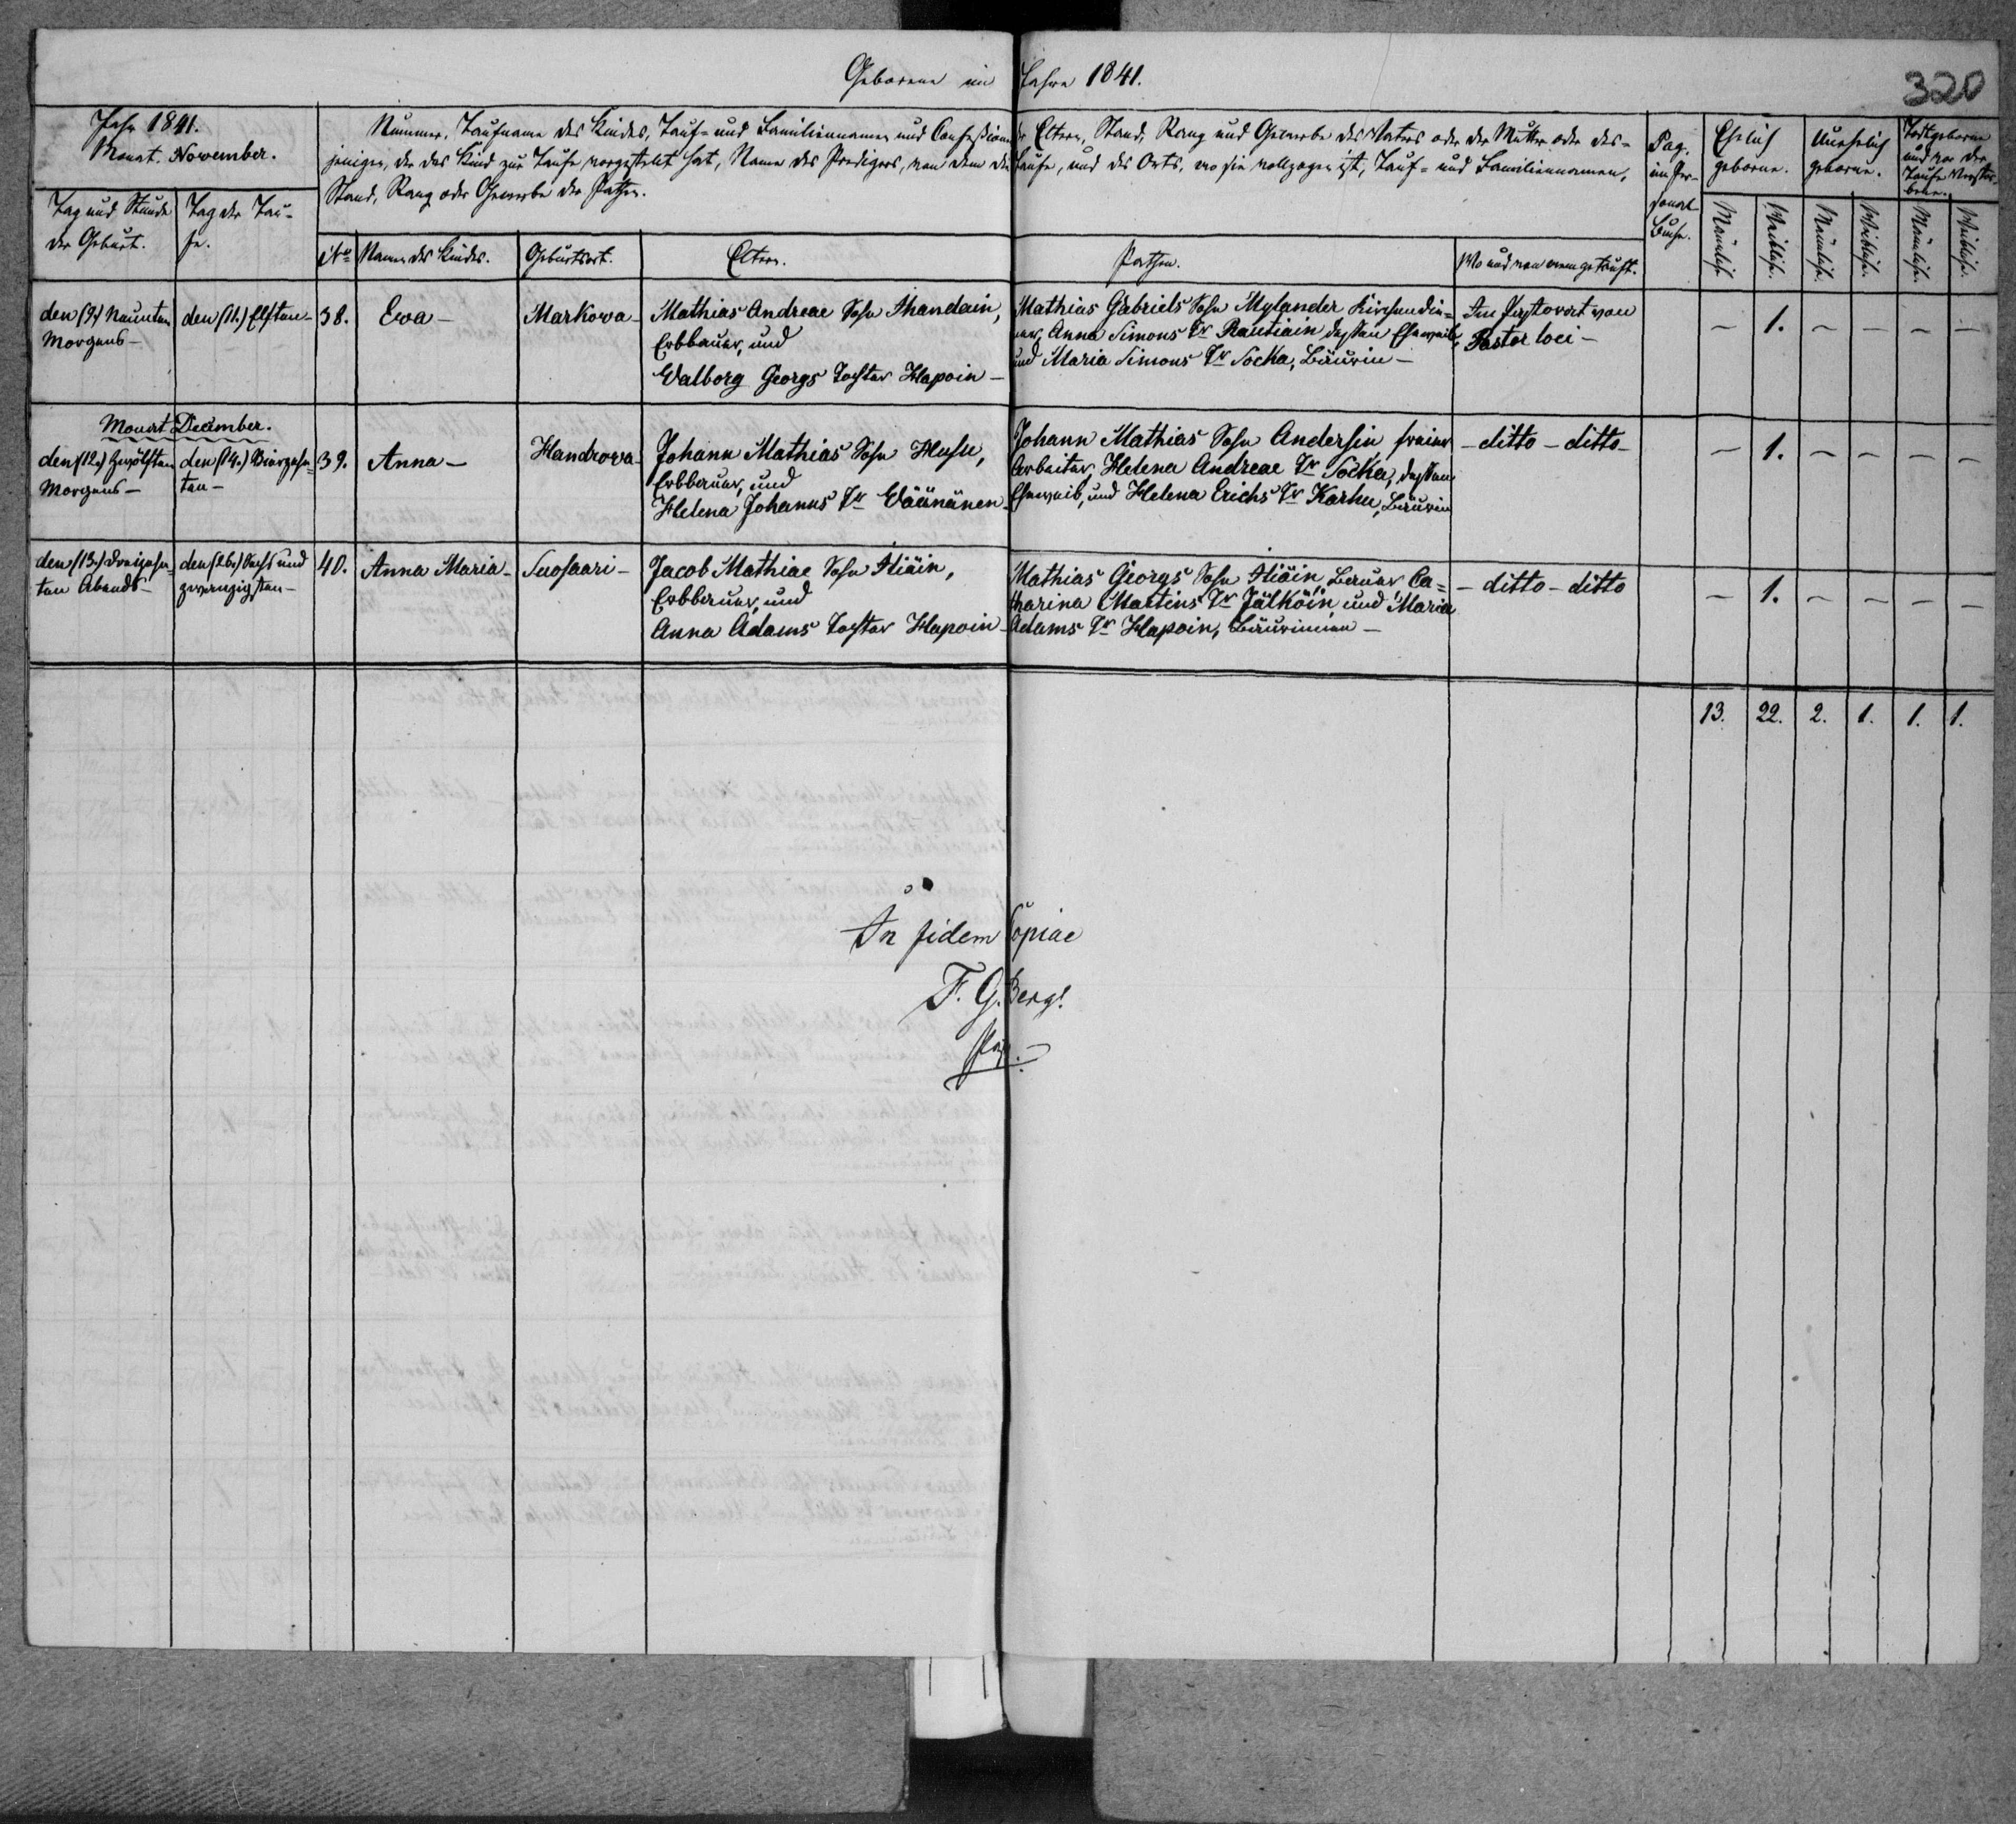 Geborene im Jahre 1841.
320
Jahr 1841.
Monat. November.
Nummer, Taufname des Kindes, Tauf- und Familiennamen und Confession der Eltern, Stand, Rang und Gewerbe des Vaters oder der Mutter oder des-
jenigen, der das Kind zur Taufe vorgestellt hat, Name des Predigers, von dem die Taufe, und des Orts, wo sie vollzogen ist, Tauf- und Familiennamen,
Stand, Rang oder Gewerbe der Pathen.
Pag.
im Per-
sonal
Buche.
Ehelich
geborne.
Unehelich
geborne.
Todtgeborne
und vor der
Taufe Verstor-
bene.
Tag und Stunde
der Geburt.
Tag der Tau-
fe.
No
Name des Kindes.
Geburtsort.
Eltern.
Pathen.
Wo und von wem getauft.
Männlich.
Weiblich.
Männlich.
Weiblich.
Männlich.
Weiblich.
den (9.) Neunten
Morgens-
den (11.) Elften-
38.
Ewa-
Markowa-
Mathias Andreae Sohn Thandain,
Erbbauer, und
Walborg Georgs Tochter Hapoin-
Mathias Gabriels Sohn Mylander Kirchendie-
ner, Anna Simons Tr Rautiain dessen Eheweib,
und Maria Simons Tr Socka, Bäurin-
Im Pastorat von
Pastor loci-
- 1. - - - -
Monat December.
den (12.) Zwölften
Morgens-
den (14.) Vierzehn-
ten-
39.
Anna-
Handrowa-
Johann Mathias Sohn Husu,
Erbbauer, und
Helena Johanns Tr Wäänänen-
Johann Mathias Sohn Andersin freier
Arbeiter, Helena Andreae Tr Socka, dessen
Eheweib, und Helena Erichs Tr Karhu, Bäurin
- ditto - ditto-
- 1. - - - -
den (13.) Dreizehn-
ten Abends-
den (26.) Sechs und
zwanzigsten-
40.
Anna Maria-
Suosaari-
Jacob Mathiae Sohn Hiäin,
Erbbauer, und
Anna Adams Tochter Hapoin-
Mathias Georgs Sohn Hiäin, Bauer Ca-
tharina Martins Tr Jälköin und Maria
Adams Tr Hapoin, Bäurinnen-
- ditto - ditto
- 1. - - - -
13. 22. 2. 1. 1. 1.
In fidem Copiae
F. G. Bergs.